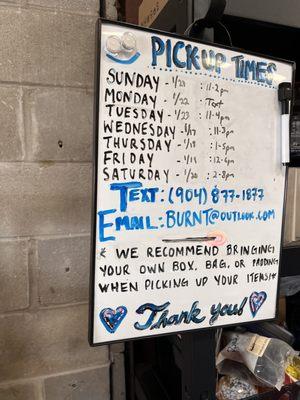 PICKUP TIMES
SUNDAY - 1/21 : 11-2pm
MONDAY - 1/22 : Text
TUESDAY - 1/23 : 11-4pm
WEDNESDAY - 1/17 : 11-3pm
THURSDAY - 1/18 : 1-5pm
FRIDAY - 1/19 : 12-6pm
SATURDAY - 1/20 : 2-8pm
TEXT: (904) 877-1877
EMAIL: BURNT@OUTLOOK.COM
* WE RECOMMEND BRINGING
YOUR OWN BOX, BAG, OR PADDING
WHEN PICKING UP YOUR ITEMS! *
Thank you!